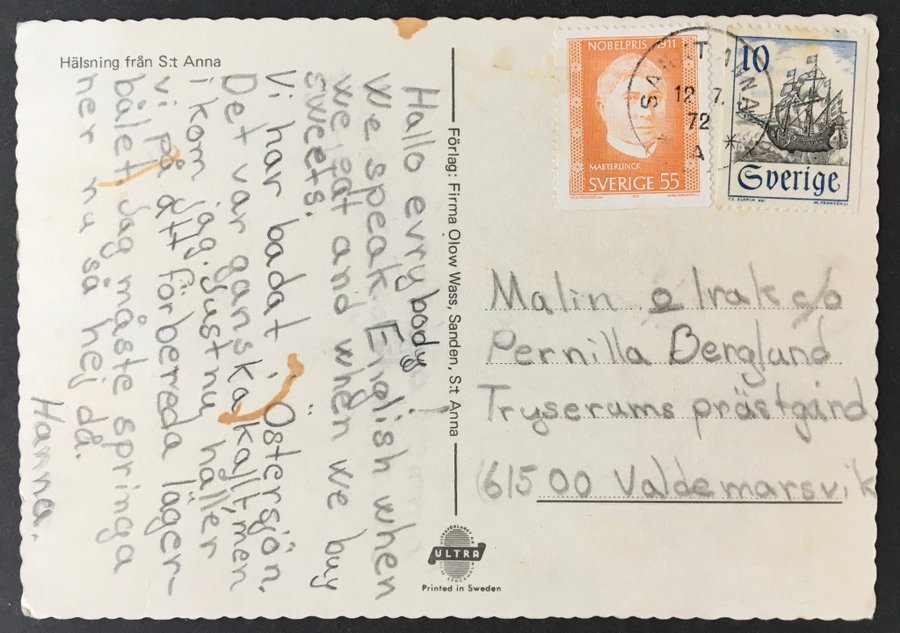 Hälsning från S:t Anna
Hallo evrybody!
We speak English when
we eat and when we buy
sweets.
Vi har badat i Östersjön.
Det var ganska kallt men
i kom jag. Just nu håller
vi på att förbereda läger-
bålet. Jag måste springa
ner nu så hej då.
Hanna.
Förlag: Firma Olow Wass, Sanden, S:t Anna
ULTRA
Printed in Sweden
NOBELPRIS 1911
MAETERLINCK
SVERIGE 55
10
Sverige
SANKT ANNA
12 7.
72
A *
Malin o Irak c/o
Pernilla Berglund
Tryserums prästgård
61500 Valdemarsvik